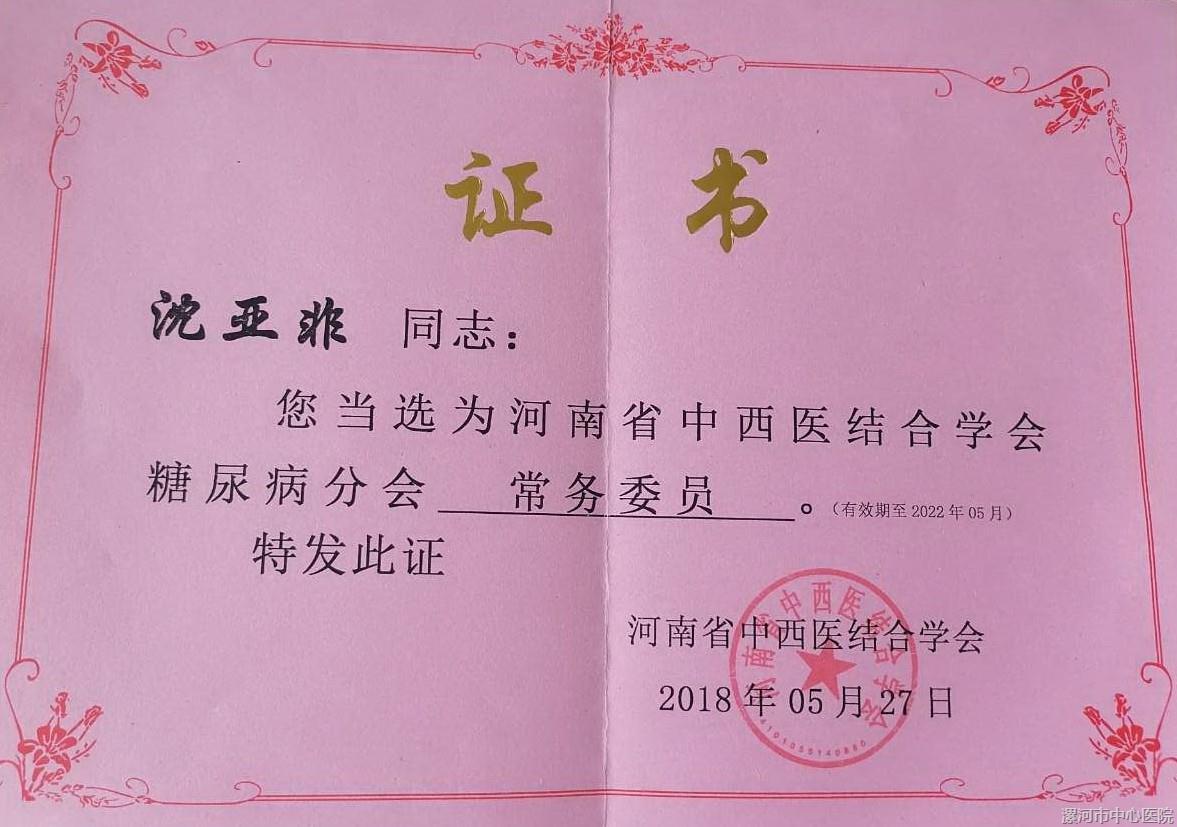 证书
沈亚非 同志：
您当选为河南省中西医结合学会
糖尿病分会 常务委员 。（有效期至2022年05月）
特发此证
河南省中西医结合学会
2018年05月27日
河南省中西医结合学会
漯河市中心医院